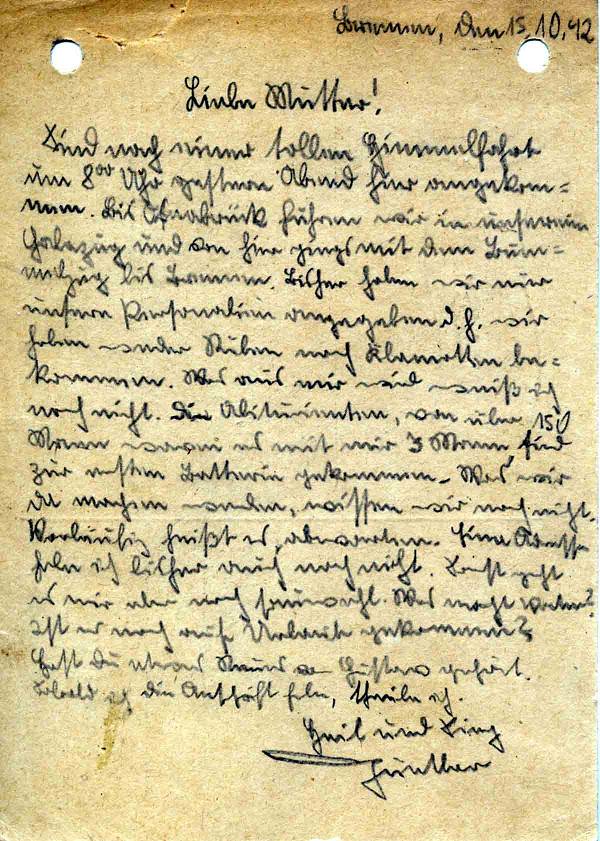 Bremen, den 15.10.42
Liebe Mutter!
Sind nach einer tollen Himmelfahrt
um 8⁰⁰ Uhr gestern Abend hier angekom=
men. Bis Osnabrück fuhren wir in unserem
und von hier gings mit dem Bum=
melzug bis Bremen. Bisher haben wir nur
unsere Personalien angegeben d.h. wir
haben weder Stuben noch Klamotten be=
kommen. Was aus mir wird weiß ich
noch nicht. Die Abiturienten, von über 150
Mann waren es mit mir 3 Mann, sind
zur ersten Batterie gekommen. Was wir
da machen werden, wissen wir noch nicht.
Vorläufig heißt es, abwarten. Eine Adresse
habe ich bisher auch noch nicht. Sonst geht
es mir aber noch sauwohl. Was macht Vater?
Ist er noch auf Urlaub gekommen?
Hast Du etwas Neues von Gustav gehört.
Sobald ich die Anschrift habe, theile ich.
Heil und Sieg
Günther